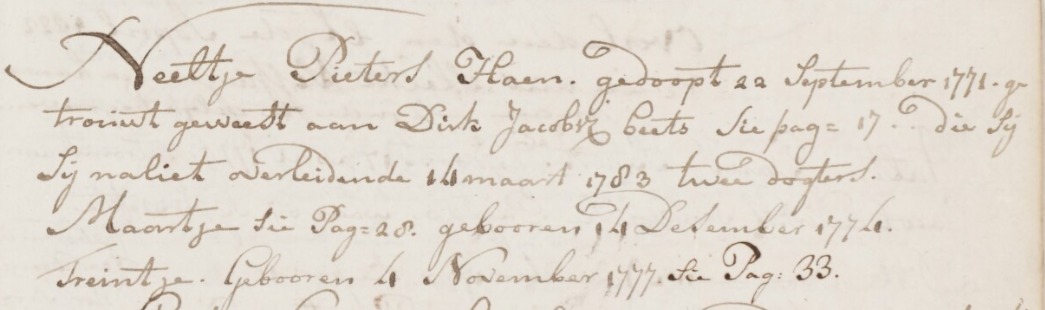 Neeltje Pieters Haen. gedoopt 22 September 1771. ge
trouwt geweest aan Dirk Jacobsz beets Sie pag= 17. die Sij
Sij naliet overleidende 14 maart 1783 twee dogters.
Maartje Sie Pag=28. gebooren 14 Desember 1774.
Treintje. Gebooren 4 November 1777. Sie Pag: 33.